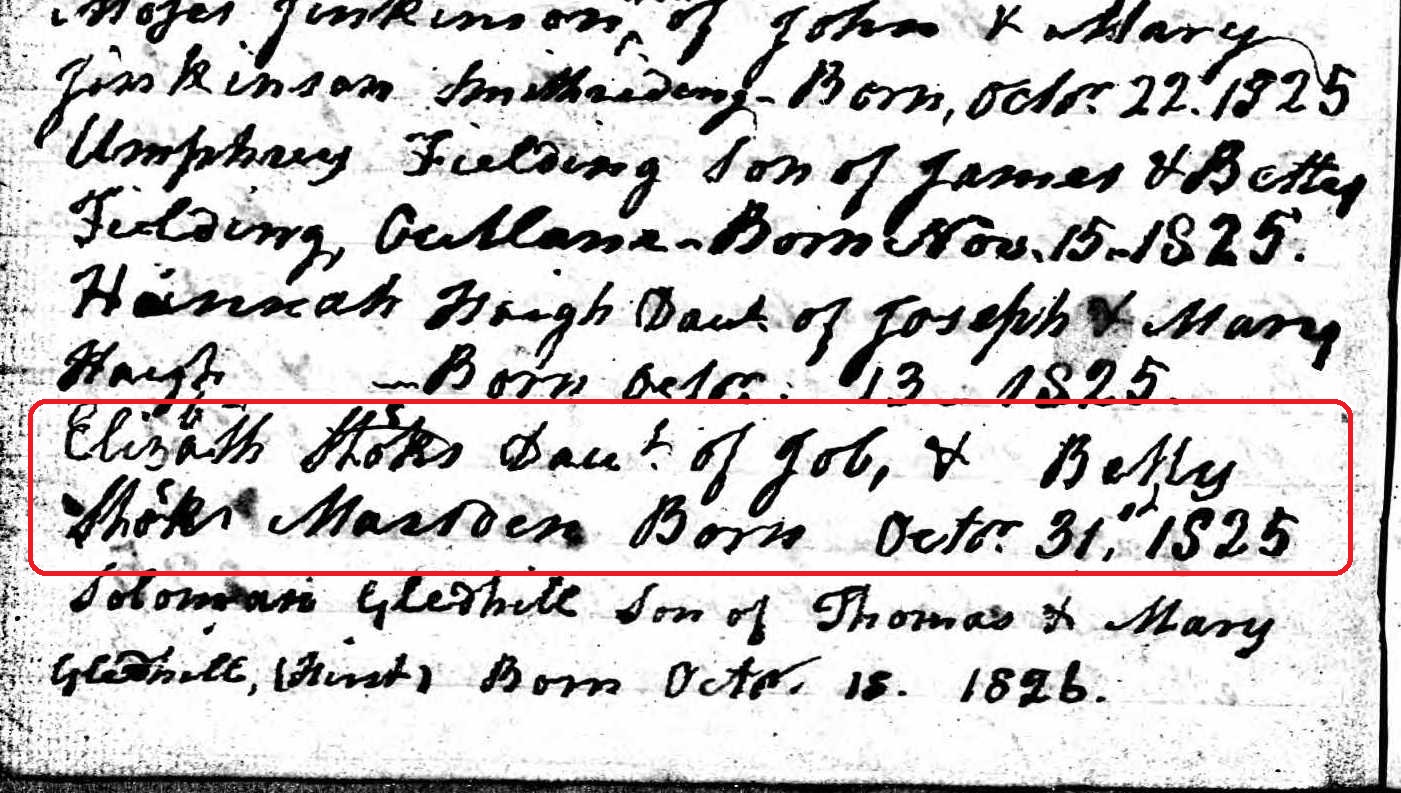 Moses Jinkinson, of John & Mary
Jinkinson Smithrideing - Born, Octor. 22. 1825
Umphrey Fielding Son of James & Betty
Fielding, Outlane - Born Nov. 15 - 1825.
Hannah Haigh Daut. of Joseph & Mary
Haigh - Born Octor. 13 - 1825.
Elizath Daut. of Job, & Betty
Marsden Born Octor. 31, 1825
Soloman Gledhill Son of Thomas & Mary
Gledhill, (Hirst) Born Octor. 18. 1826.